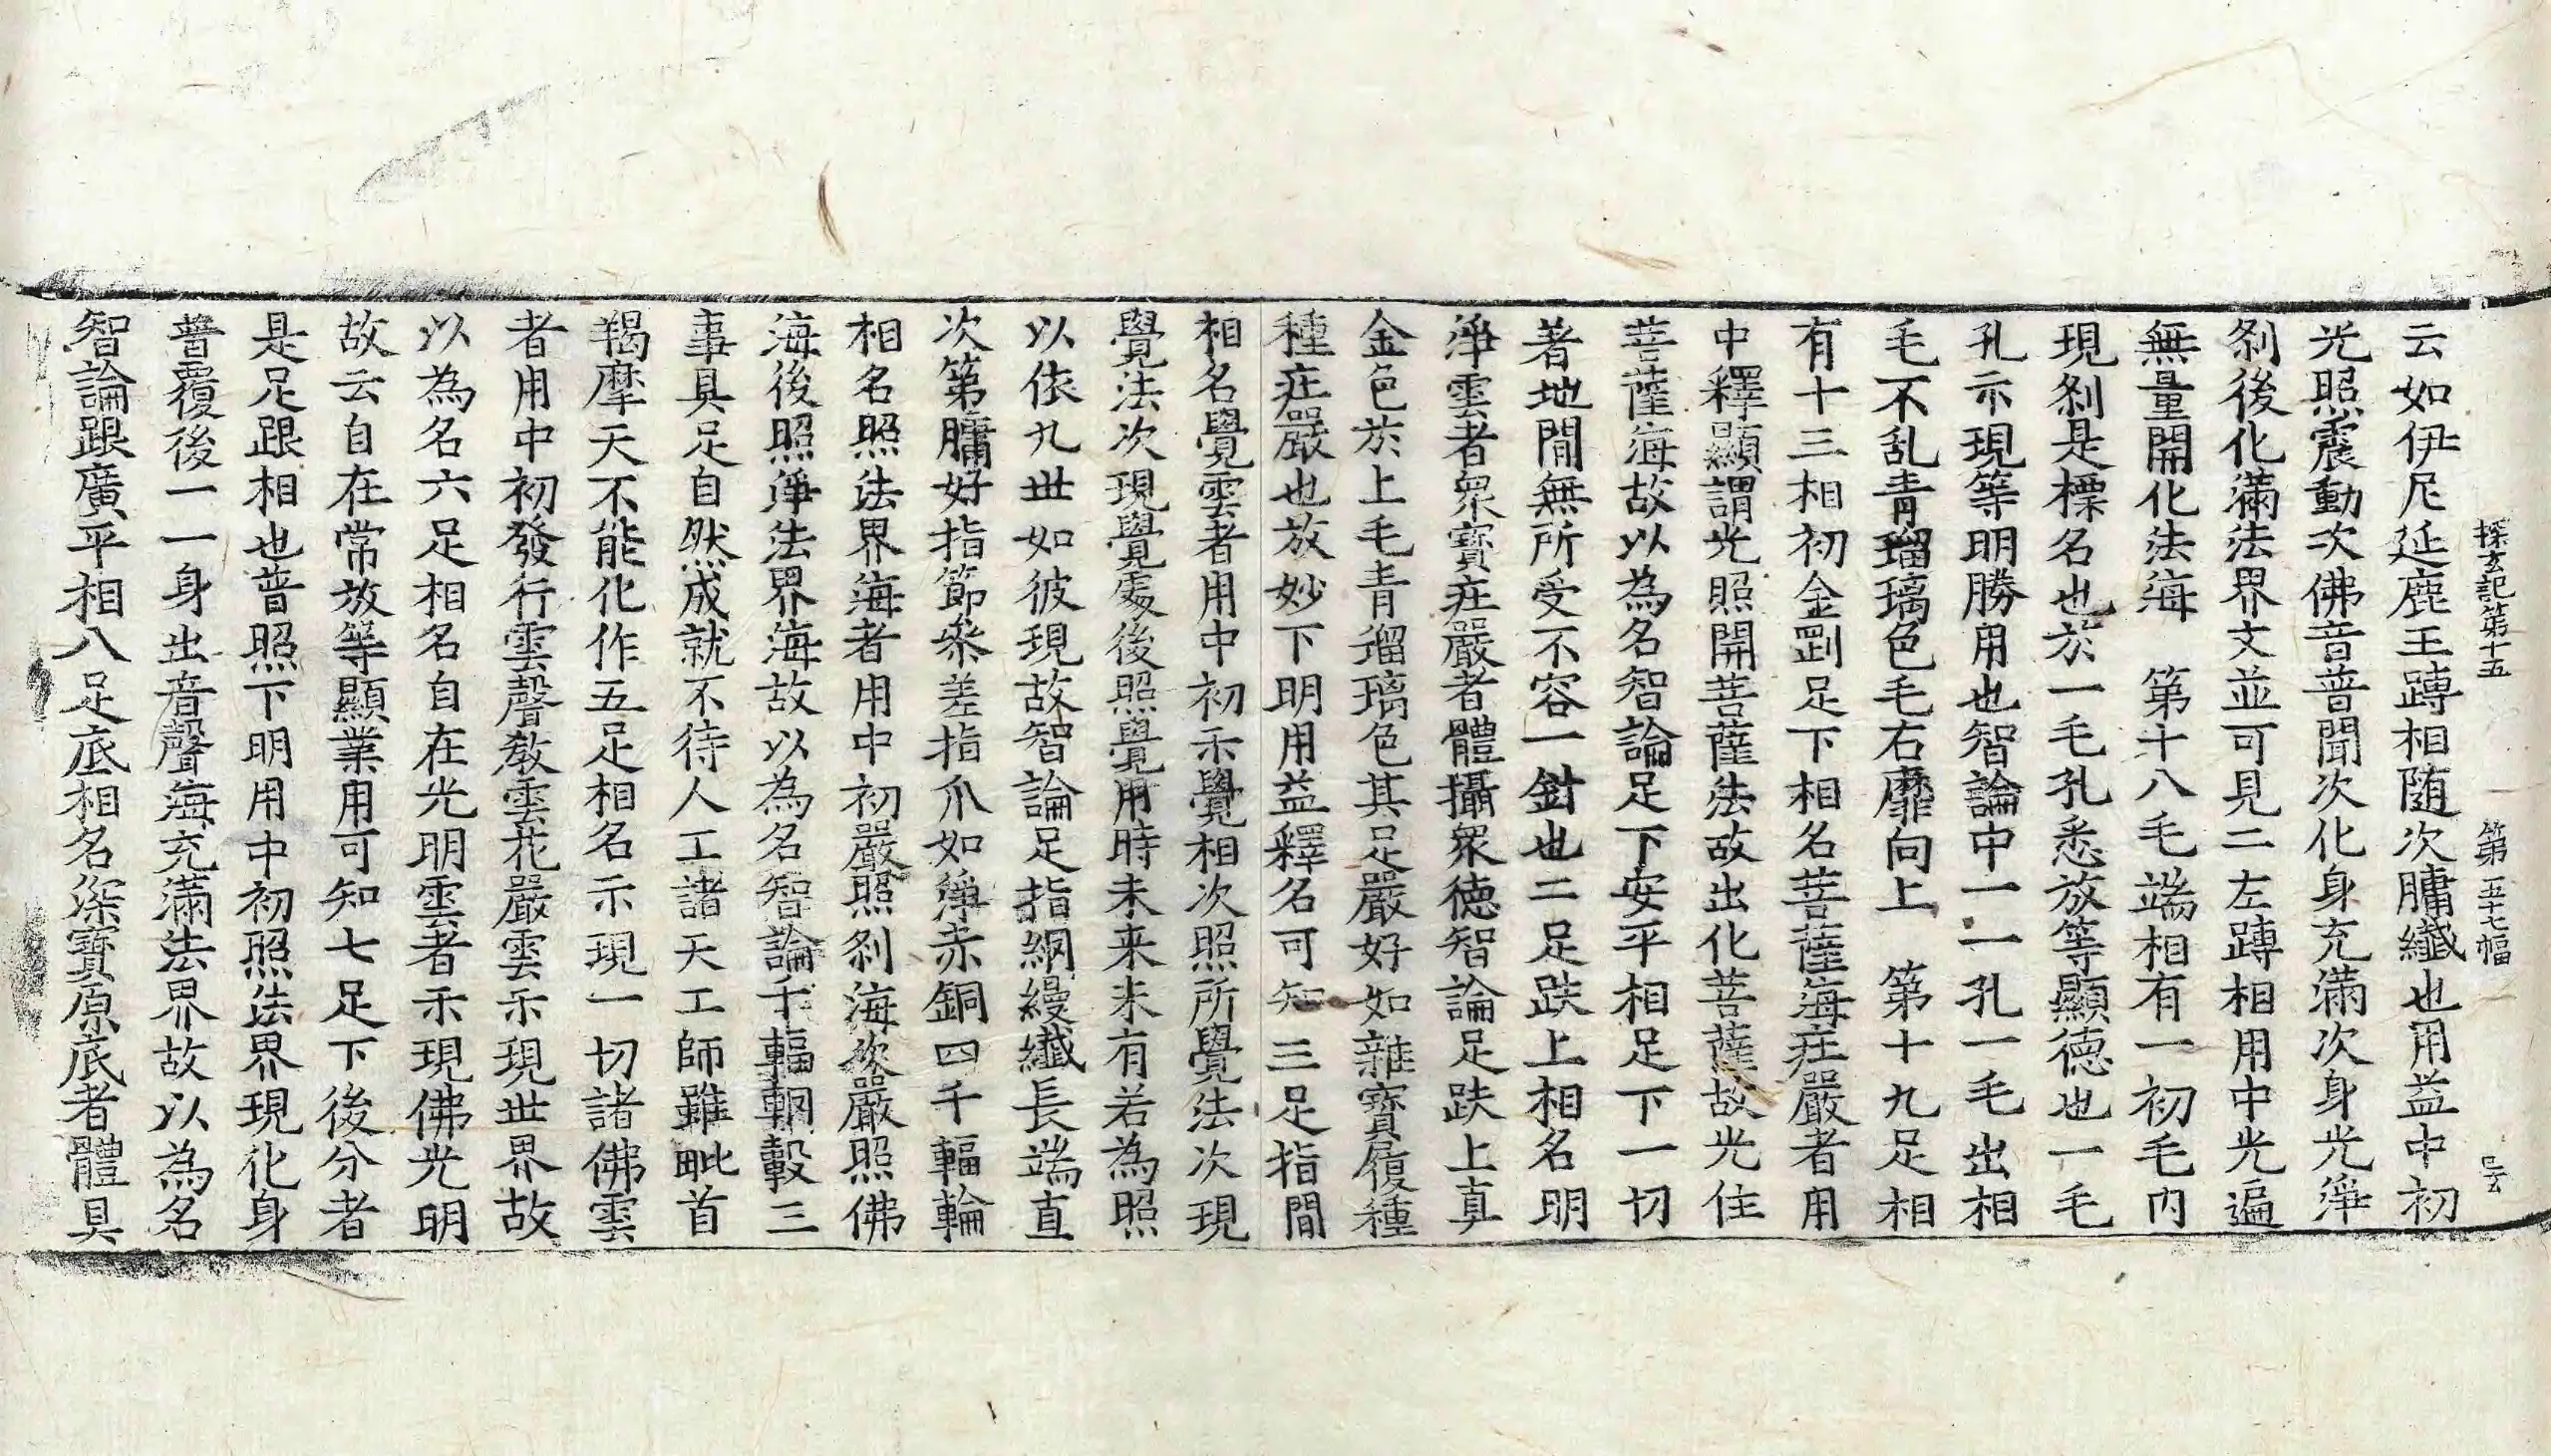 探玄記第十五　第五十七幅　云
云如伊尼延鹿王蹲相随次𦟛纖也用益中初
光照震動次佛音普聞次化身充滿次身光淨
刹後化滿法界文並可見二左蹲相用中光遍
無量開化法海　第十八毛端相有一初毛内
現刹是標名也於一毛孔悉放等顯德也一毛
孔示現等明勝用也智論中一一孔一毛出相
毛不乱青瑠璃色毛右靡向上　第十九足相
有十三相初金剛足下相名菩薩海莊嚴者用
中釋顯謂光照開菩薩法故出化菩薩故光住
菩薩海故以為名智論足下安平相足下一切
著地間無所受不容一針也二足趺上相名明
淨雲者衆寶莊嚴者體攝衆德智論足趺上真
金色於上毛青瑠璃色其足嚴好如雜寶履種
種莊嚴也放妙下明用益釋名可知三足指間
相名覺雲者用中初示覺相次照所覺法次現
覺法次現覺處後照覺用時未来未有若為照
以依九世如彼現故智論足指網縵纖長端直
次第𦟛好指節叅差指爪如淨赤銅四千輻輪
相名照法界海者用中初嚴照刹海次嚴照佛
海後照淨法界海故以為名智論千輻輞轂三
事具足自然成就不待人工諸天工師雖毗首
羯摩天不能化作五足相名示現一切諸佛雲
者用中初發行雲聲教雲花嚴雲示現世界故
以為名六足相名自在光明雲者示現佛光明
故云自在常放等顯業用可知七足下後分者
是足跟相也普照下明用中初照法界現化身
普覆後一一身出音聲海充滿法界故以為名
智論跟廣平相八足底相名深寶原底者體具